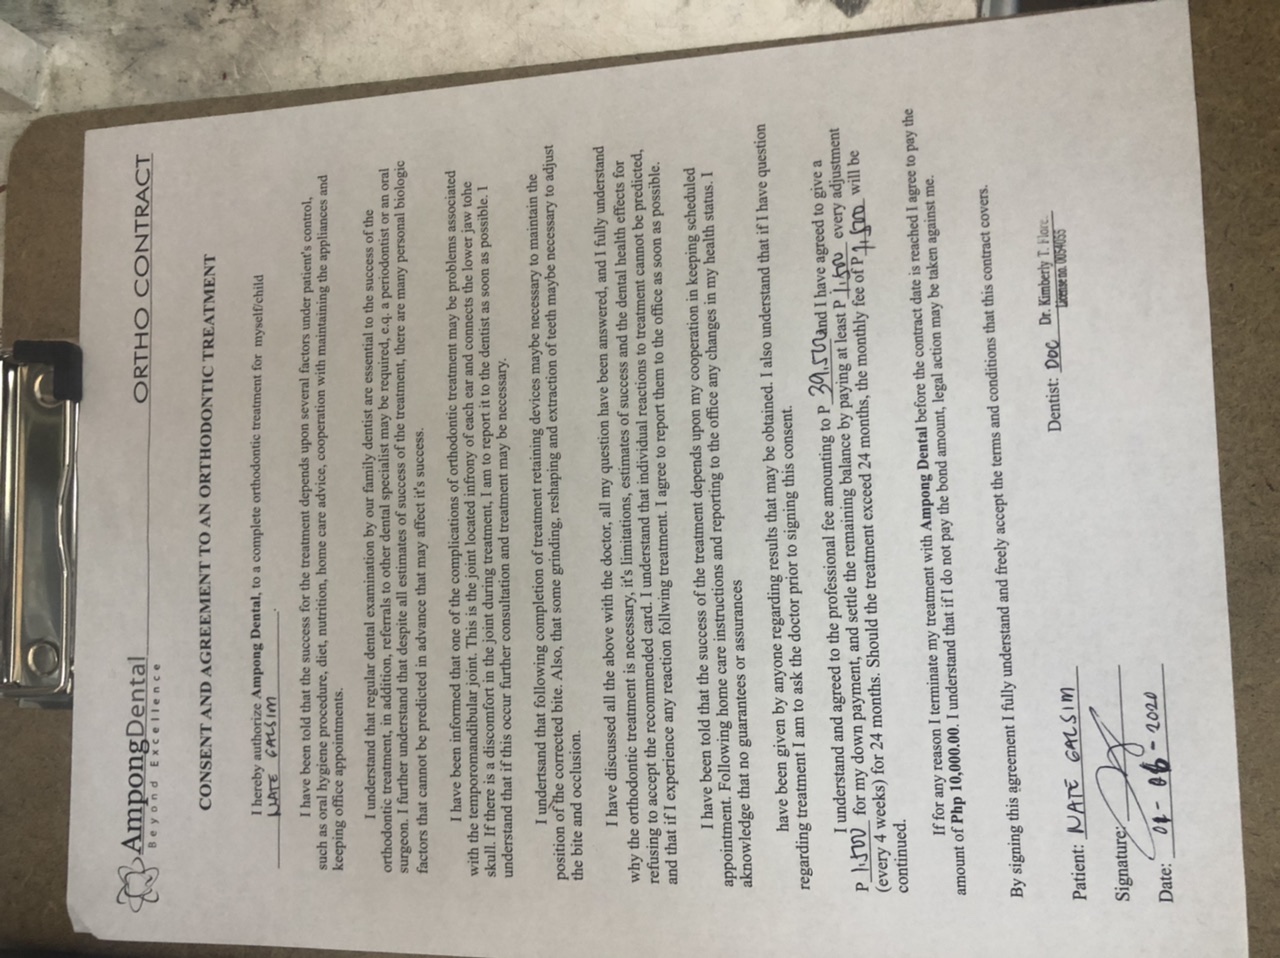 AmpongDental
Beyond Excellence
ORTHO CONTRACT
CONSENT AND AGREEMENT TO AN ORTHODONTIC TREATMENT
I hereby authorize Ampong Dental, to a complete orthodontic treatment for myself/child
NATE GALSIM.
I have been told that the success for the treatment depends upon several factors under patient's control,
such as oral hygiene procedure, diet, nutrition, home care advice, cooperation with maintaining the appliances and
keeping office appointments.
I understand that regular dental examination by our family dentist are essential to the success of the
orthodontic treatment, in addition, referrals to other dental specialist may be required, e.q. a periodontist or an oral
surgeon. I further understand that despite all estimates of success of the treatment, there are many personal biologic
factors that cannot be predicted in advance that may affect it's success.
I have been informed that one of the complications of orthodontic treatment may be problems associated
with the temporomandibular joint. This is the joint located infrony of each ear and connects the lower jaw tohe
skull. If there is a discomfort in the joint during treatment, I am to report it to the dentist as soon as possible. I
understand that if this occur further consultation and treatment may be necessary.
I undertsand that following completion of treatment retaining devices maybe necessary to maintain the
position of the corrected bite. Also, that some grinding, reshaping and extraction of teeth maybe necessary to adjust
the bite and occlusion.
I have discussed all the above with the doctor, all my question have been answered, and I fully understand
why the orthodontic treatment is necessary, it's limitations, estimates of success and the dental health effects for
refusing to accept the recommended card. I understand that individual reactions to treatment cannot be predicted,
and that if I experience any reaction follwing treatment. I agree to report them to the office as soon as possible.
I have been told that the success of the treatment depends upon my cooperation in keeping scheduled
appointment. Following home care instructions and reporting to the office any changes in my health status. I
aknowledge that no guarantees or assurances
have been given by anyone regarding results that may be obtained. I also understand that if I have question
regarding treatment I am to ask the doctor prior to signing this consent.
I understand and agreed to the professional fee amounting to P 39,500 and I have agreed to give a
P 1,500 for my down payment, and settle the remaining balance by paying at least P 1,500 every adjustment
(every 4 weeks) for 24 months. Should the treatment exceed 24 months, the monthly fee of P 1,500 will be
continued.
If for any reason I terminate my treatment with Ampong Dental before the contract date is reached I agree to pay the
amount of Php 10,000.00. I understand that if I do not pay the bond amount, legal action may be taken against me.
By signing this agreement I fully understand and freely accept the terms and conditions that this contract covers.
Dentist: DOC Dr. Kimberly T. Flore
License no. 0054055
Patient: NATE GALSIM
Signature:
Date: 01-06-2020